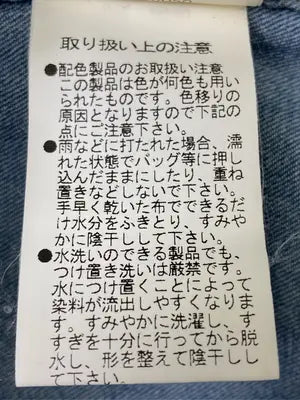 取り扱い上の注意
●配色製品のお取扱い注意
この製品は色が何色も用い
られたものです。色移りの
原因となりますので下記の
点にご注意下さい。
●雨などに打たれた場合、濡
れた状態でバッグ等に押し
込んだままにしたり、重ね
置きなどしないで下さい。
手早く乾いた布でできるだ
け水分をふきとり、すみや
かに陰干しして下さい。
●水洗いのできる製品でも、
つけ置き洗いは厳禁です。
水につけ置くことによって
染料が流出しやすくなりま
す。すみやかに洗濯し、す
すぎを十分に行ってから脱
水し、形を整えて陰干しし
て下さい。